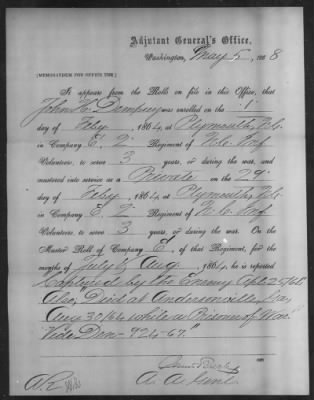 Adjutant General's Office,
Washington, May 5, 1868
[MEMORANDUM FOR OFFICE USE.]
It appears from the Rolls on file in this Office, that
John H. Dempsey was enrolled on the 1"
day of Feby, 1864, at Plymouth, N.C.
in Company E. 2" Regiment of N.C. Inf
Volunteers, to serve 3 years, or during the war, and
mustered into service as a Private on the 29"
day of Feby, 1864, at Plymouth, N.C.
in Company E. 2" Regiment of N.C. Inf
Volunteers, to serve 3 years, or during the war. On the
Muster Roll of Company E, of that Regiment, for the
months of July & Aug, 1864, he is reported
Captured by the Enemy Apl.
Also, "Died at Andersonville, Ga,
Aug 30/64 while a Prisoner of War"
Vide Den - 924-67."
A. A. Genl